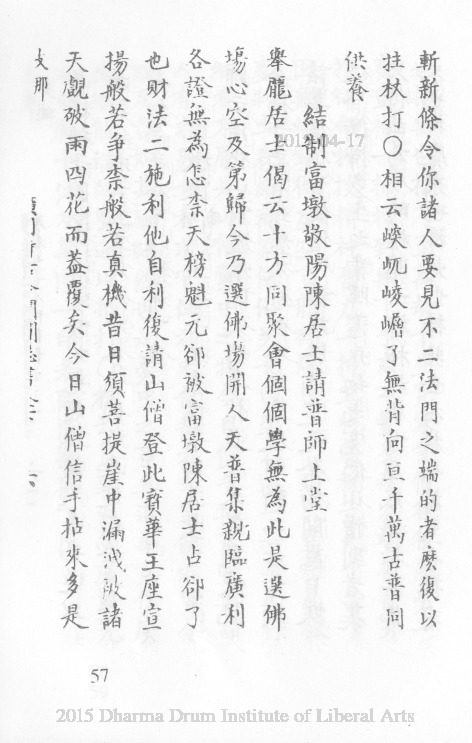 斬新條令你諸人要見不二法門之端的者麽復以
拄杖打○相云峻屼崚嶒了無背向亘千萬古普同
供養
結制富墩敬陽陳居士請普師上堂
舉龐居士偈云十方同聚會個個學無為此是選佛
塲心空及第歸今乃選佛塲開人天普集親臨廣利
各證無為怎柰天榜魁元卻被富墩陳居士占卻了
也財法二施利他自利復請山僧登此寳華王座宣
揚般若争柰般若真機昔日須菩提崖中漏洩被諸
天覷破雨四花而葢覆矣今日山僧信手拈來多是
支那
2015-04-17
57
2015 Dharma Drum Institute of Liberal Arts